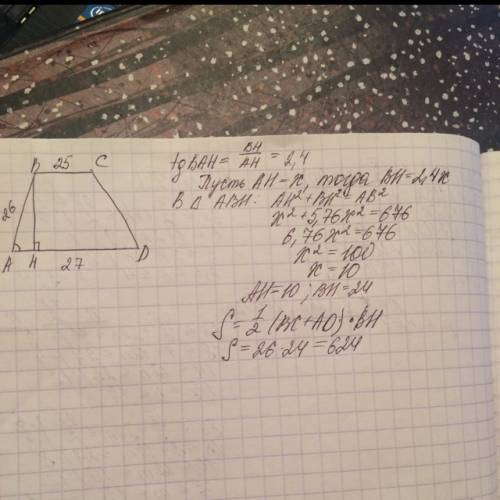 B 25 C
26
A H 27 D
tg BAH = BH/AH = 2,4
Пусть AH - x, тогда BH = 2,4x
В Δ ABH: AH² + BH² = AB²
x² + 5,76x² = 676
6,76x² = 676
x² = 100
x = 10
AH = 10; BH = 24
S = 1/2 (BC + AD) · BH
S = 26 · 24 = 624